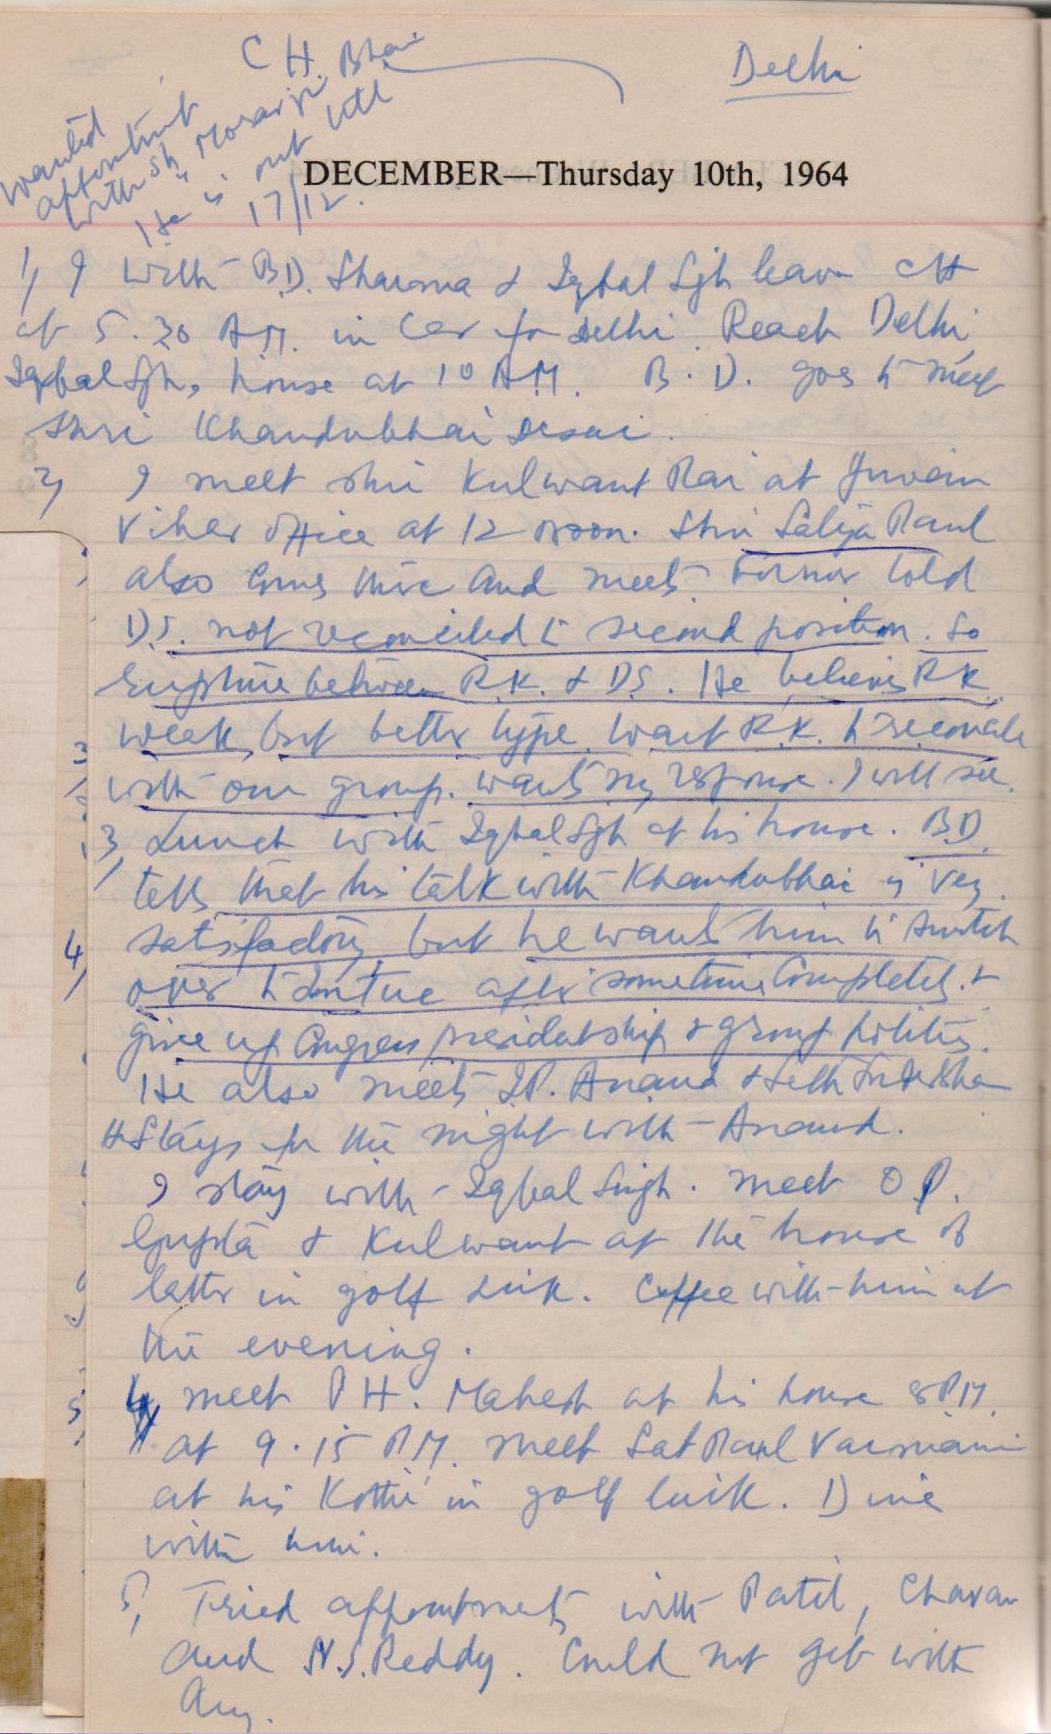 C H. Bhai
Delhi
Wanted
appointmt
with Sh. Morarji
He is out till
17/12.
DECEMBER—Thursday 10th, 1964
1) I with B.D. Sharma & Iqbal Sgh leave CH
at 5.30 A.M. in Car for Delhi. Reach Delhi,
Iqbal Sgh, house at 10 A.M. B.D. goes to meet
Shri Khandubhai Desai.
2) I meet Shri Kulwant Rai at
Viher office at 12 noon. Shri Satya Paul
also comes there and meets. Former told
D.S. not reconciled to second position. So
rupture between R.K. & D.S. He believes R.K.
weak, but better type. Want R.K. to reconcile
with our group. Wants my response. I will see.
3) Lunch with Iqbal Sgh at his house. B.D.
tells that his talk with Khandubhai is very
satisfactory but he wants him to switch
over to after sometime completely &
give up Congress presidentship & group politics.
He also meets I.P. Anand & Seth
& Stays for the night with Anand.
I stay with Iqbal Singh. Meet O.P.
Gupta & Kulwant at the house of
latter in golf link. Coffee with him at
the evening.
4) Meet P H. at his house 8 P.M.
at 9.15 P.M. meet Sat Paul
at his Kothi in golf link. Dine
with him.
5) Tried appointments with Patil, Chavan
and N.S. Reddy. Could not get with
Any.